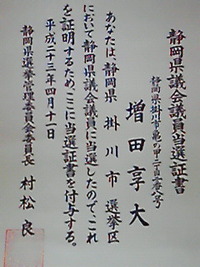 静岡県議会議員当選証書
静岡県掛川市亀の甲
増田享大
あなたは、静岡県掛川市選挙区
において静岡県議会議員に当選したので、これ
を証明するため、ここに当選証書を付与する。
平成二十三年四月十一日
静岡県選挙管理委員会委員長 村松良